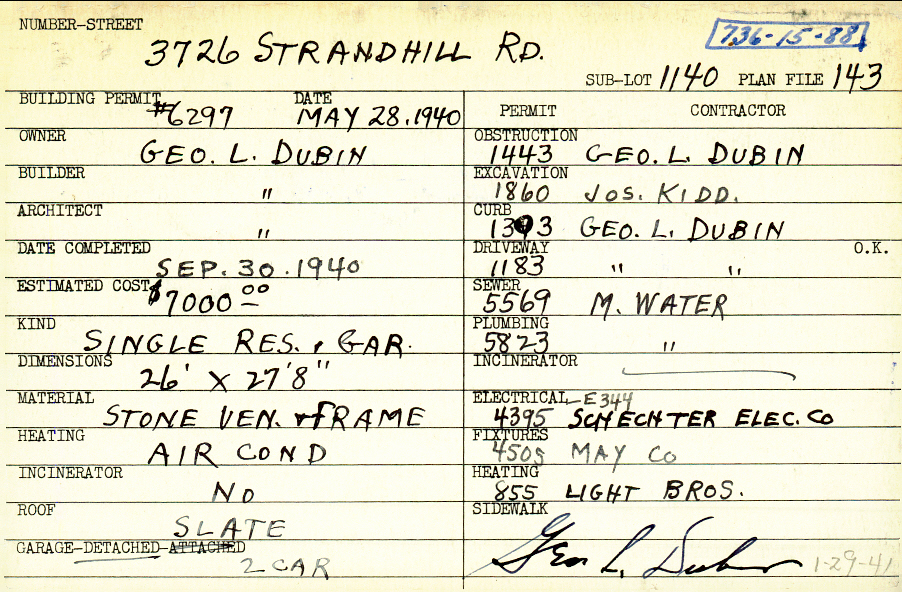 NUMBER-STREET
3726 STRANDHILL RD.
736-15-88
SUB-LOT 1140 PLAN FILE 143
BUILDING PERMIT #6297 DATE MAY 28, 1940
OWNER
GEO. L. DUBIN
BUILDER
"
ARCHITECT
"
DATE COMPLETED
SEP. 30. 1940
ESTIMATED COST $7000 00
KIND
SINGLE RES. & GAR.
DIMENSIONS
26' X 27'8"
MATERIAL
STONE VEN. & FRAME
HEATING
AIR COND
INCINERATOR
NO
ROOF
SLATE
GARAGE-DETACHED-ATTACHED
2 CAR
PERMIT CONTRACTOR
OBSTRUCTION
1443 GEO. L. DUBIN
EXCAVATION
1860 JOS. KIDD.
CURB
GEO. L. DUBIN
DRIVEWAY O.K.
1183 " "
SEWER
5569 M. WATER
PLUMBING
5823 "
INCINERATOR
ELECTRICAL-E344
4395 SCHECHTER ELEC. CO
FIXTURES
4505 MAY CO
HEATING
855 LIGHT BROS.
SIDEWALK
Geo L. Dubin 1-29-41